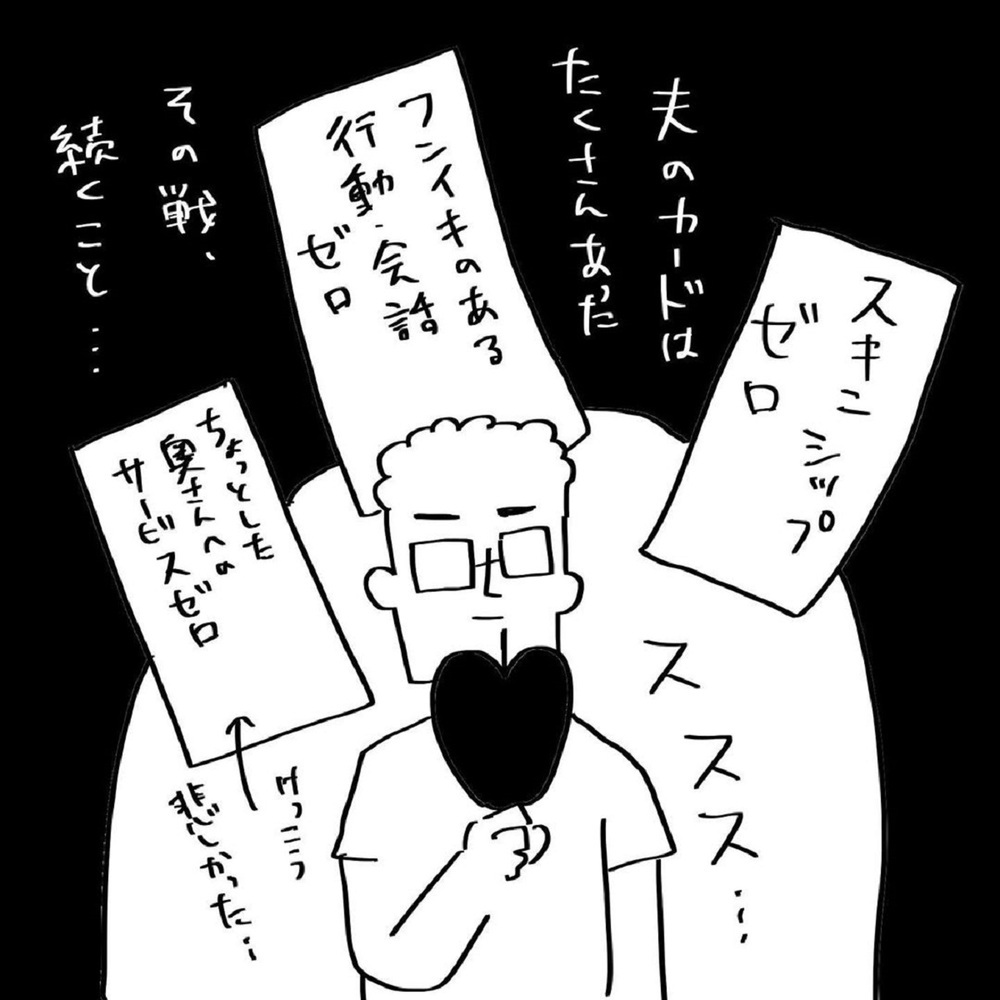 夫のカードは
たくさんあった
スキンシップ
ゼロ
フンイキのある
行動・会話
ゼロ
ちょっとした
奥さんへの
サービスゼロ
けっこう
悲しかった…
ススス…
その戦、
続くこと…